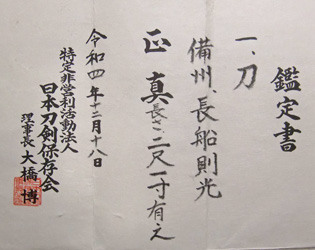 鑑定書
一、刀
備州、長船則光
正真 長さ、二尺一寸有之
令和四年十二月十八日
特定非営利活動法人
日本刀剣保存会
理事長 大橋 博